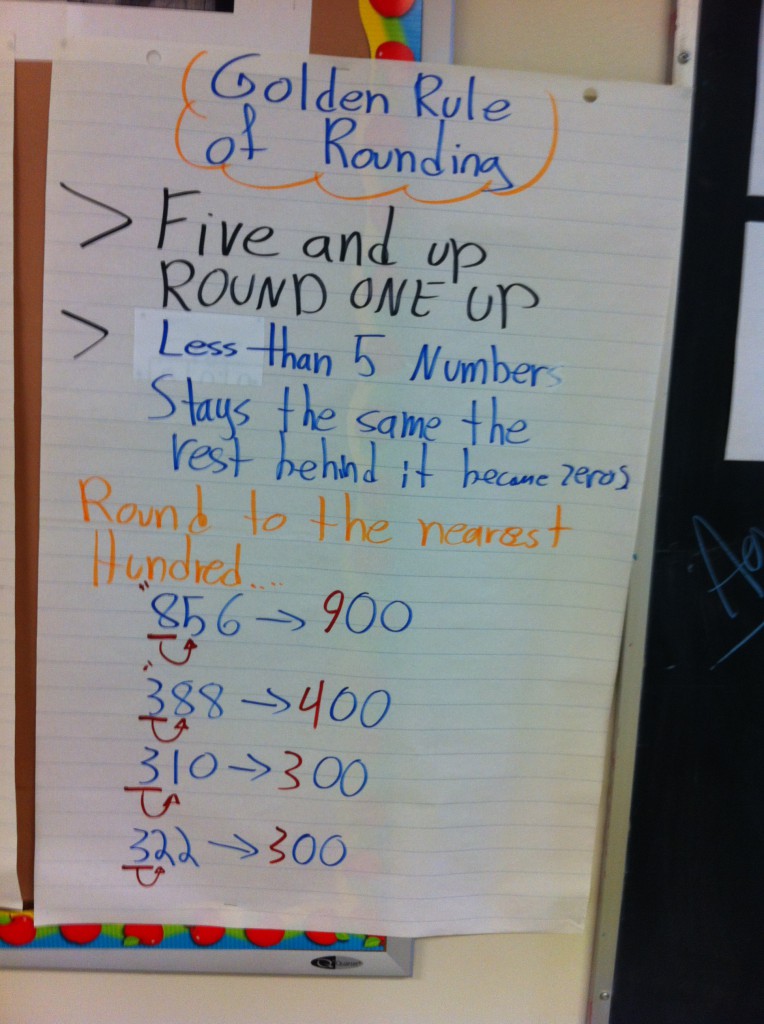 Golden Rule
of Rounding
> Five and up
ROUND ONE UP
> Less than 5 Numbers
Stays the same the
rest behind it became zeros
Round to the nearest
Hundred....
856 → 900
388 → 400
310 → 300
322 → 300